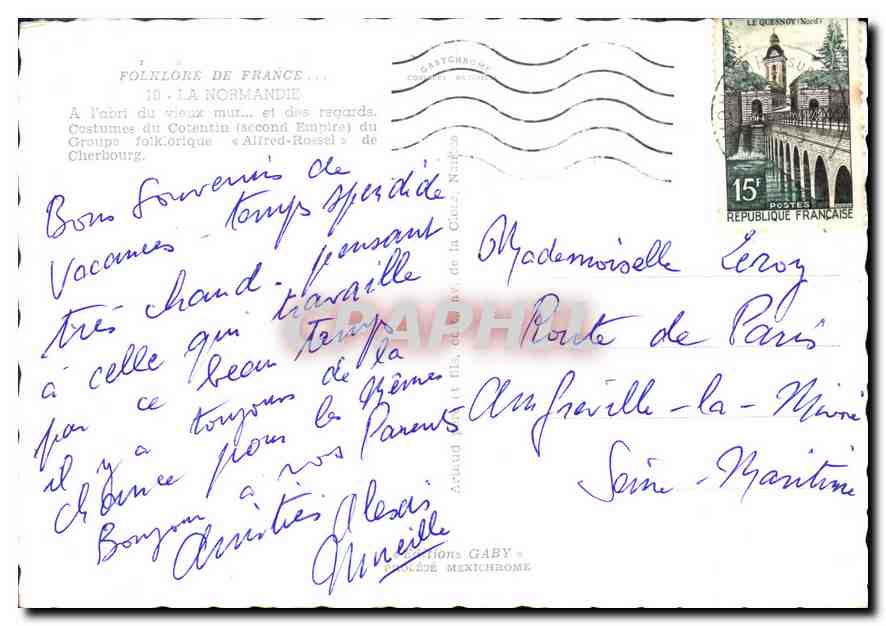 FOLKLORE DE FRANCE...
10 - LA NORMANDIE
A l'abri du vieux mur... et des regards.
Costumes du Cotentin (second Empire) du
Groupe folklorique « Alfred-Rossel » de
Cherbourg.
Bons Souvenirs de
Vacances - temps spendide
très chaud - pensant
à celle qui travaille
par ce beau temps
il y a toujours de la
chance pour les mêmes
Bonjour à vos Parents
Amitiés Alexis
Mireille
LE QUESNOY (Nord)
15F
POSTES
REPUBLIQUE FRANÇAISE
Mademoiselle Leroy
Route de Paris
Amfréville-la-Mivoie
Seine-Maritime
Artaud et fils, de la Close, Nantes
« Editions GABY »
PROCÉDÉ MEXICHROME
GRAPHIJ